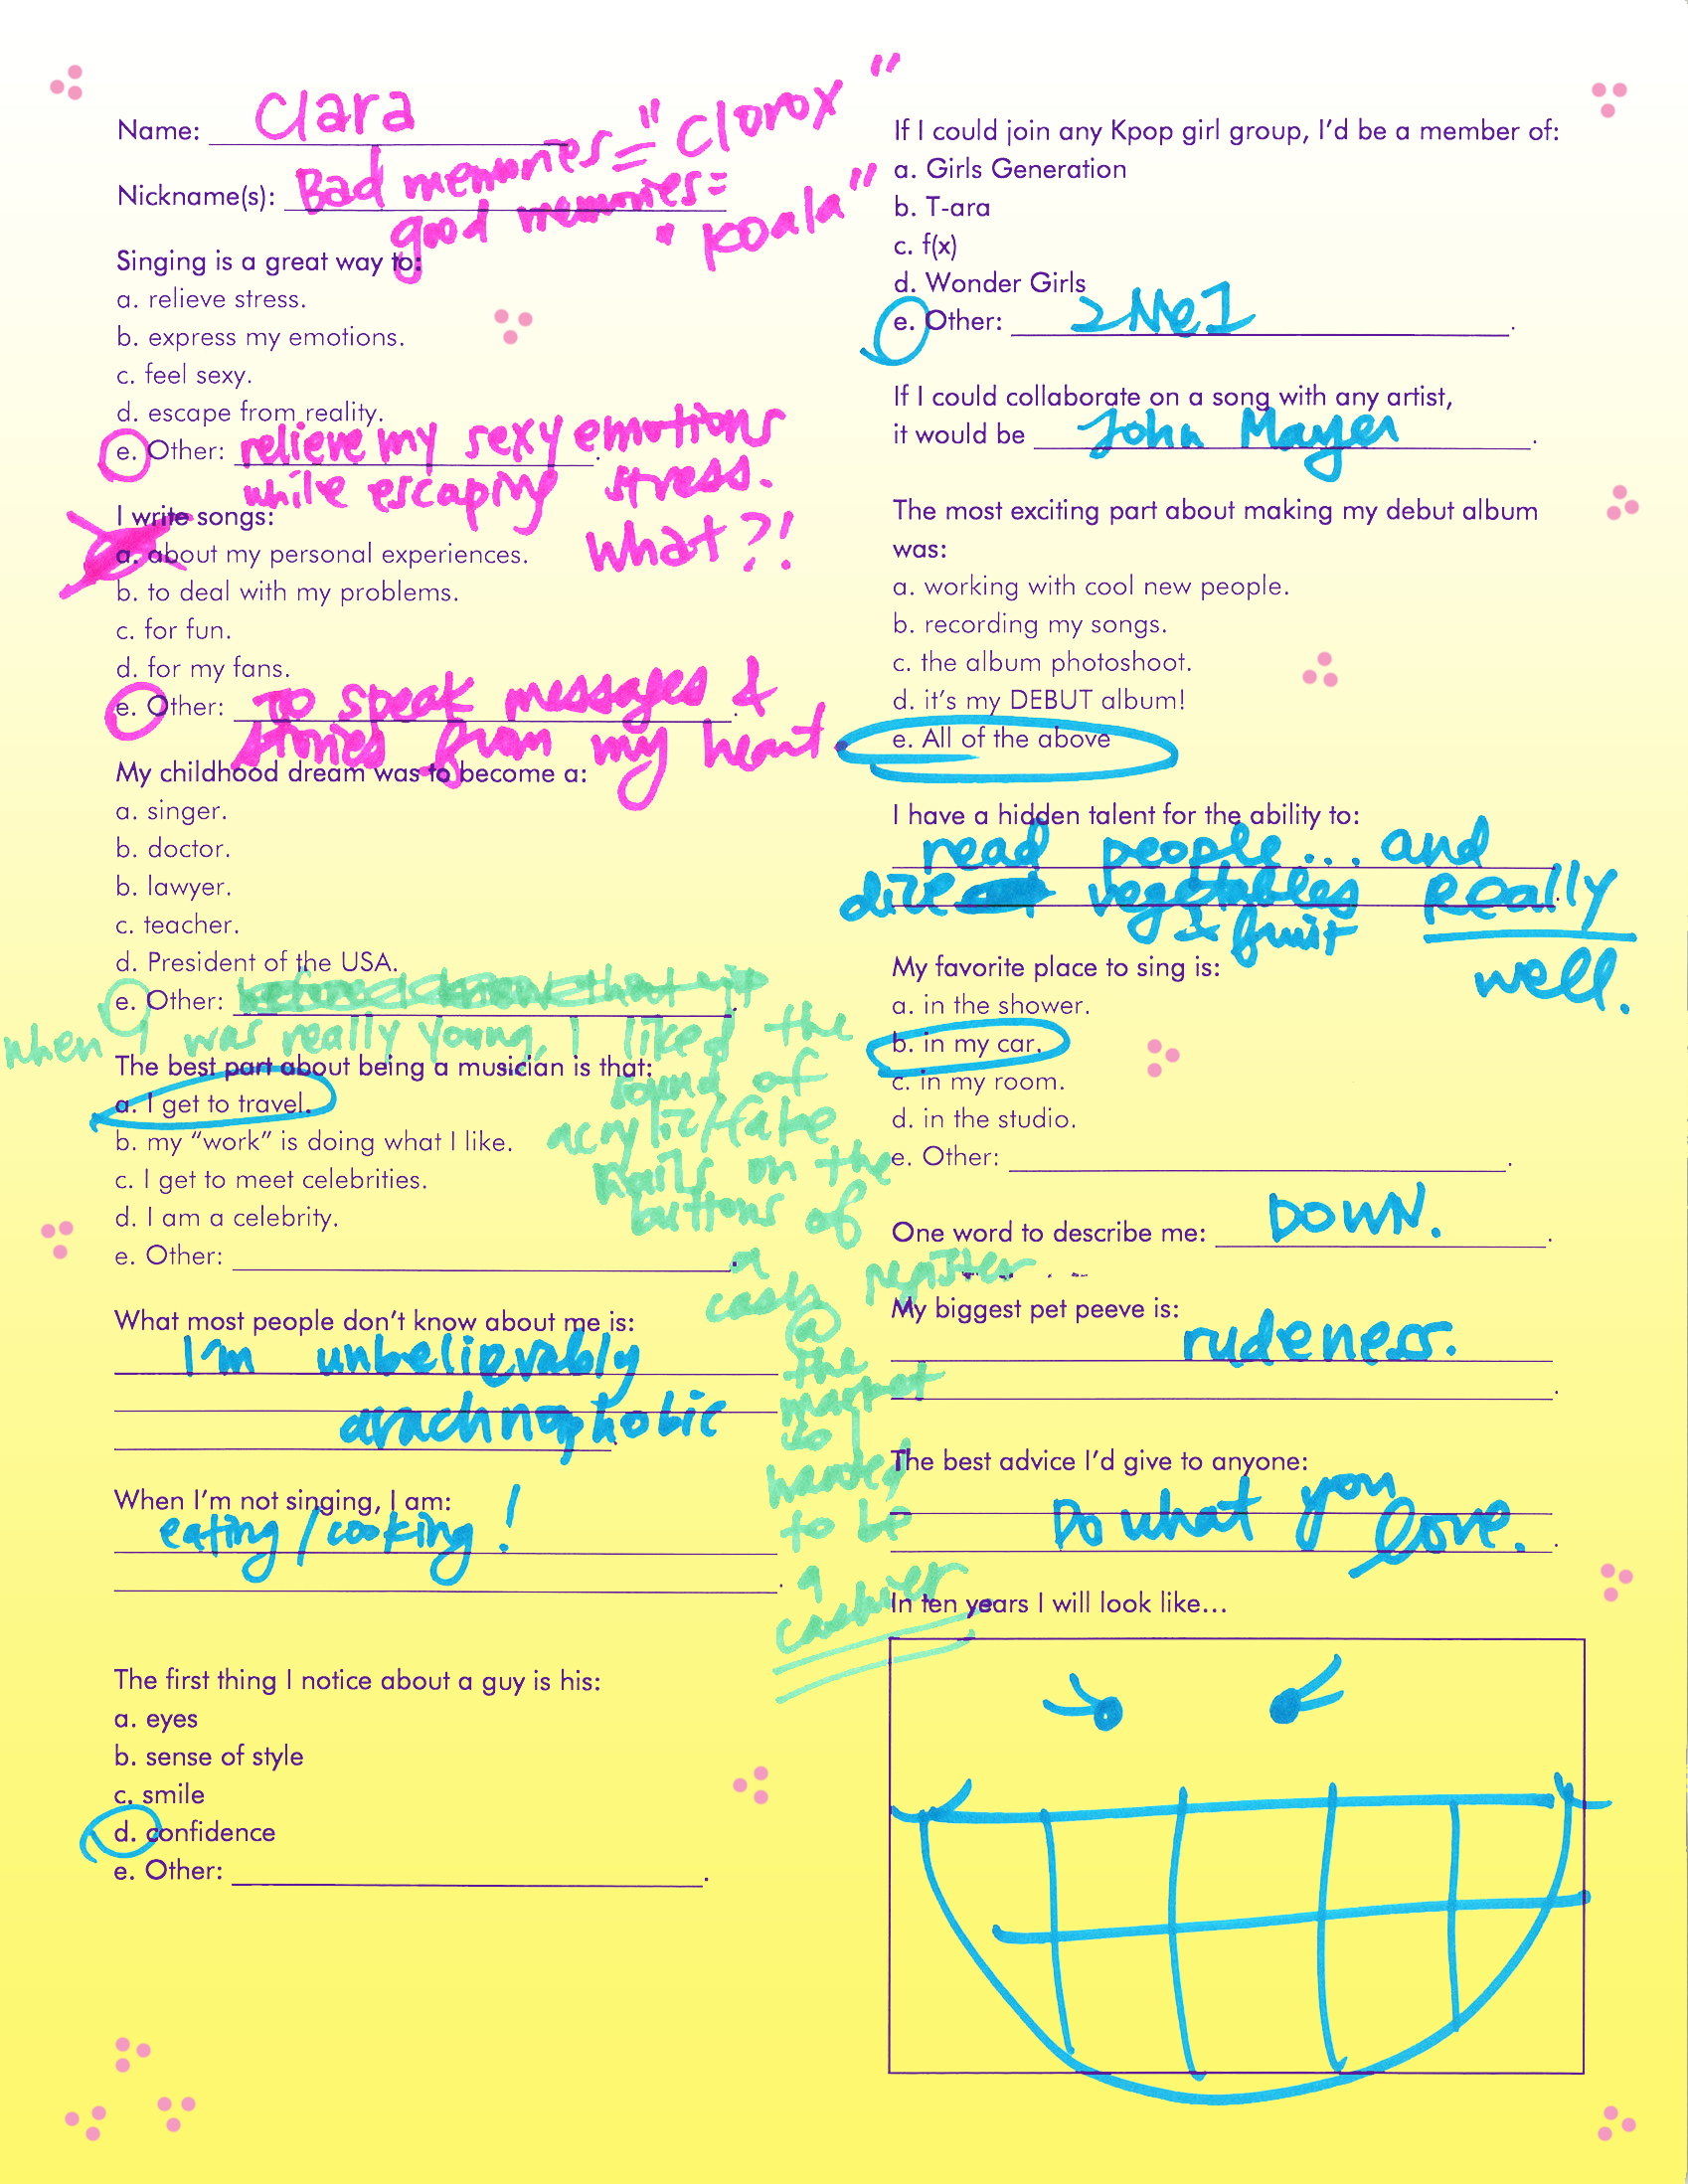 Name: Clara
Nickname(s): Bad memories = "Clorox"
good memories = "Koala"
Singing is a great way to:
a. relieve stress.
b. express my emotions.
c. feel sexy.
d. escape from reality.
e. Other: relieve my sexy emotions
while escaping stress.
What?!
I write songs:
a. about my personal experiences.
b. to deal with my problems.
c. for fun.
d. for my fans.
e. Other: To speak messages &
stories from my heart.
My childhood dream was to become a:
a. singer.
b. doctor.
b. lawyer.
c. teacher.
d. President of the USA.
e. Other:
When I was really young, I liked the
sound of
acrylic/fake
nails on the
buttons of
a
cash register
@
the
market
so
wanted
to be
a
cashier
The best part about being a musician is that:
a. I get to travel.
b. my "work" is doing what I like.
c. I get to meet celebrities.
d. I am a celebrity.
e. Other:
What most people don't know about me is:
I'm unbelievably
arachnophobic
When I'm not singing, I am:
eating/cooking!
The first thing I notice about a guy is his:
a. eyes
b. sense of style
c. smile
d. confidence
e. Other:
If I could join any Kpop girl group, I'd be a member of:
a. Girls Generation
b. T-ara
c. f(x)
d. Wonder Girls
e. Other: 2Ne1.
If I could collaborate on a song with any artist,
it would be John Mayer.
The most exciting part about making my debut album
was:
a. working with cool new people.
b. recording my songs.
c. the album photoshoot.
d. it's my DEBUT album!
e. All of the above
I have a hidden talent for the ability to:
read people... and
dice vegetables really
& fruit
well.
My favorite place to sing is:
a. in the shower.
b. in my car.
c. in my room.
d. in the studio.
e. Other:
One word to describe me: DOWN.
My biggest pet peeve is:
rudeness.
The best advice I'd give to anyone:
Do what you
love.
In ten years I will look like...